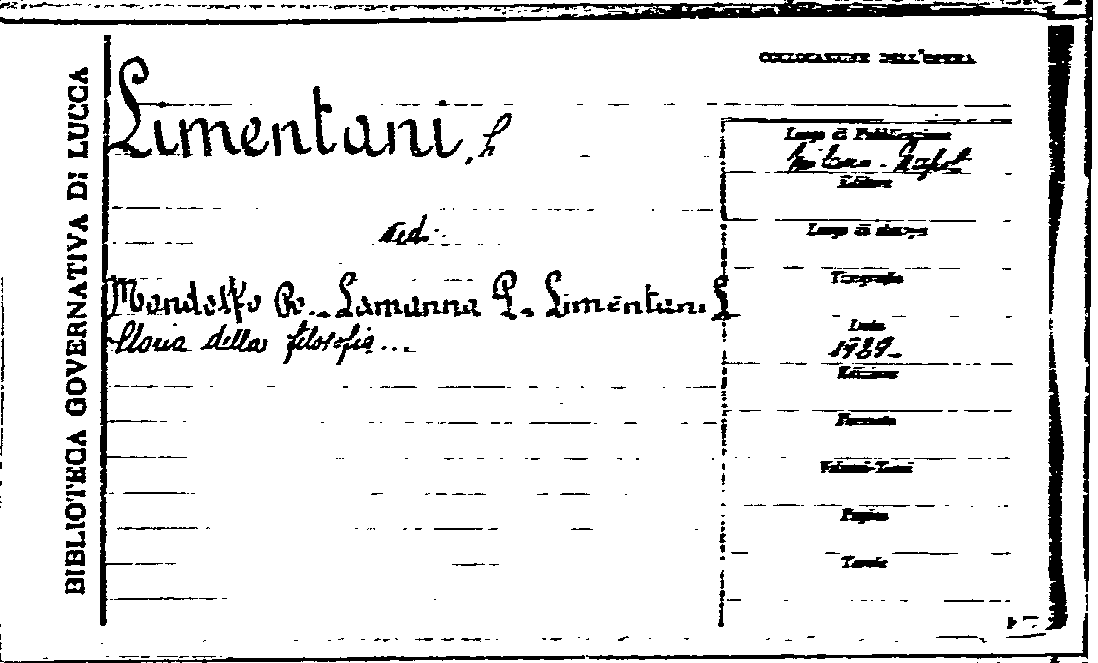 BIBLIOTECA GOVERNATIVA DI LUCCA
COLLOCAZIONE DELL'OPERA
Limentani, L
ved.
Mondolfo Ro.. Lamanna P. Limentani L
Storia della filosofia...
Luogo di Pubblicazione
Milano - Napoli
Editore
Luogo di stampa
Tipografia
Data
Edizione
Formato
Volumi-Tomi
Pagine
Tavole